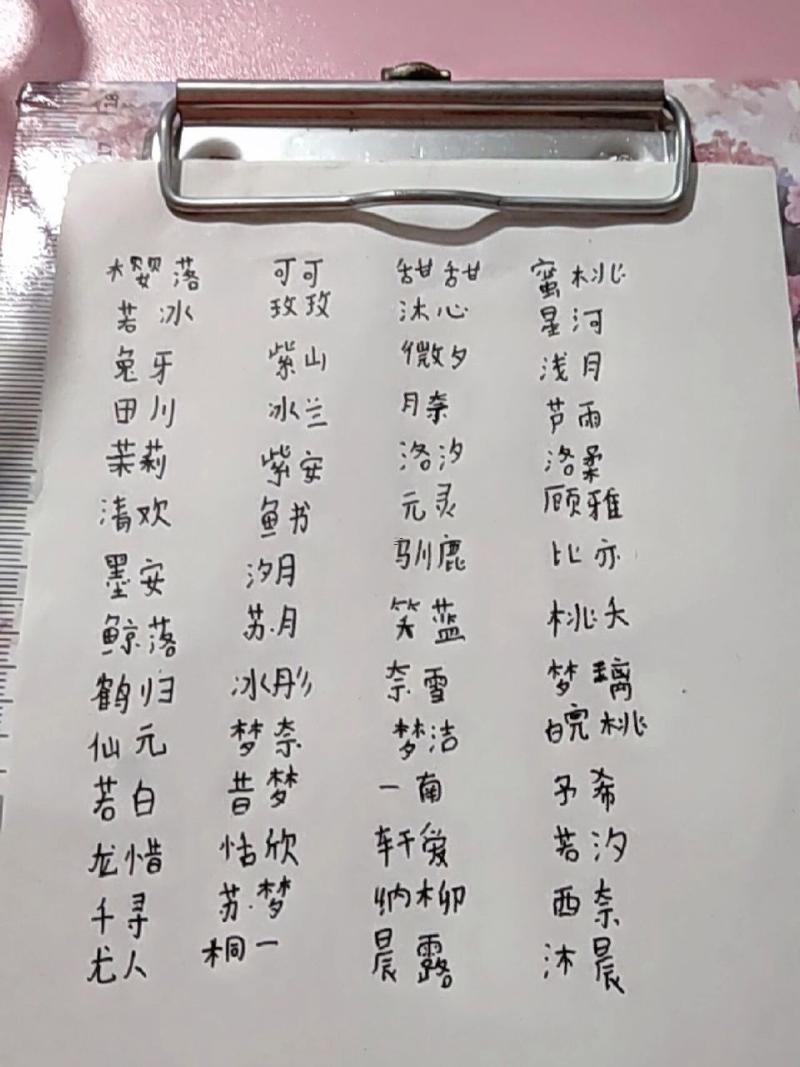 樱落 可可 甜甜 蜜桃
若冰 玫玫 沐心 星河
兔牙 紫山 微夕 浅月
田川 冰兰 月奈 芦雨
茉莉 紫安 洛汐 洛柔
清欢 鱼书 元灵 顾雅
墨安 汐月 驯鹿 比亦
鲸落 苏月 笑蓝 桃夭
鹤归 冰彤 奈雪 梦璃
仙元 梦奈 梦洁 皖桃
若白 昔梦 一南 予希
龙惜 恬欣 轩爱 若汐
千寻 苏梦 纳柳 西奈
尤人 桐一 晨露 沐晨
18